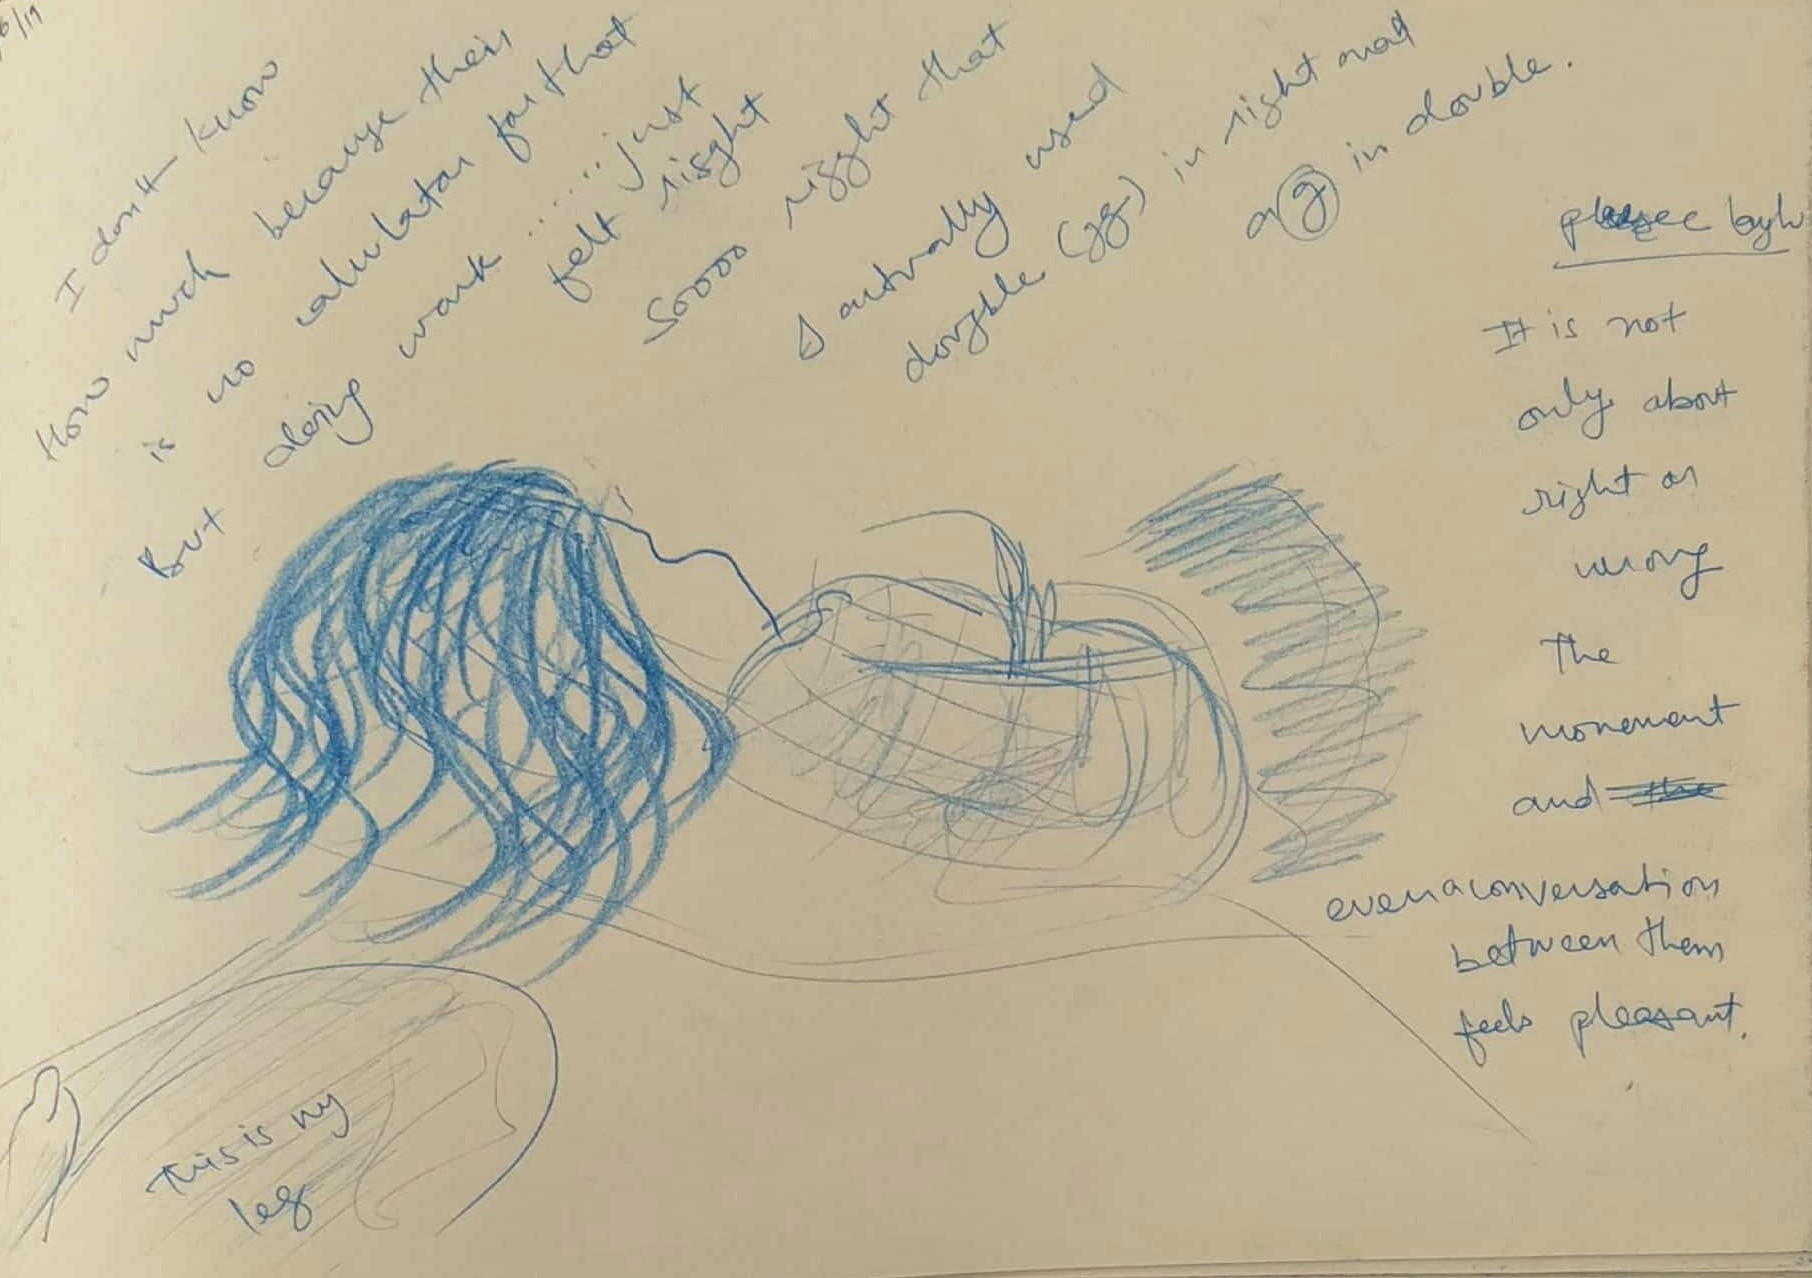 6/19
I don't know
How much because their
is no calulator for that
But doing work ........just
felt risght
Soooo rigght that
I actually used
dougble (gg) in right and
a g in double.
please laugh
It is not
only about
right or
wrong
The
movement
and the
even a conversation
between them
feels pleasant.
This is my
leg